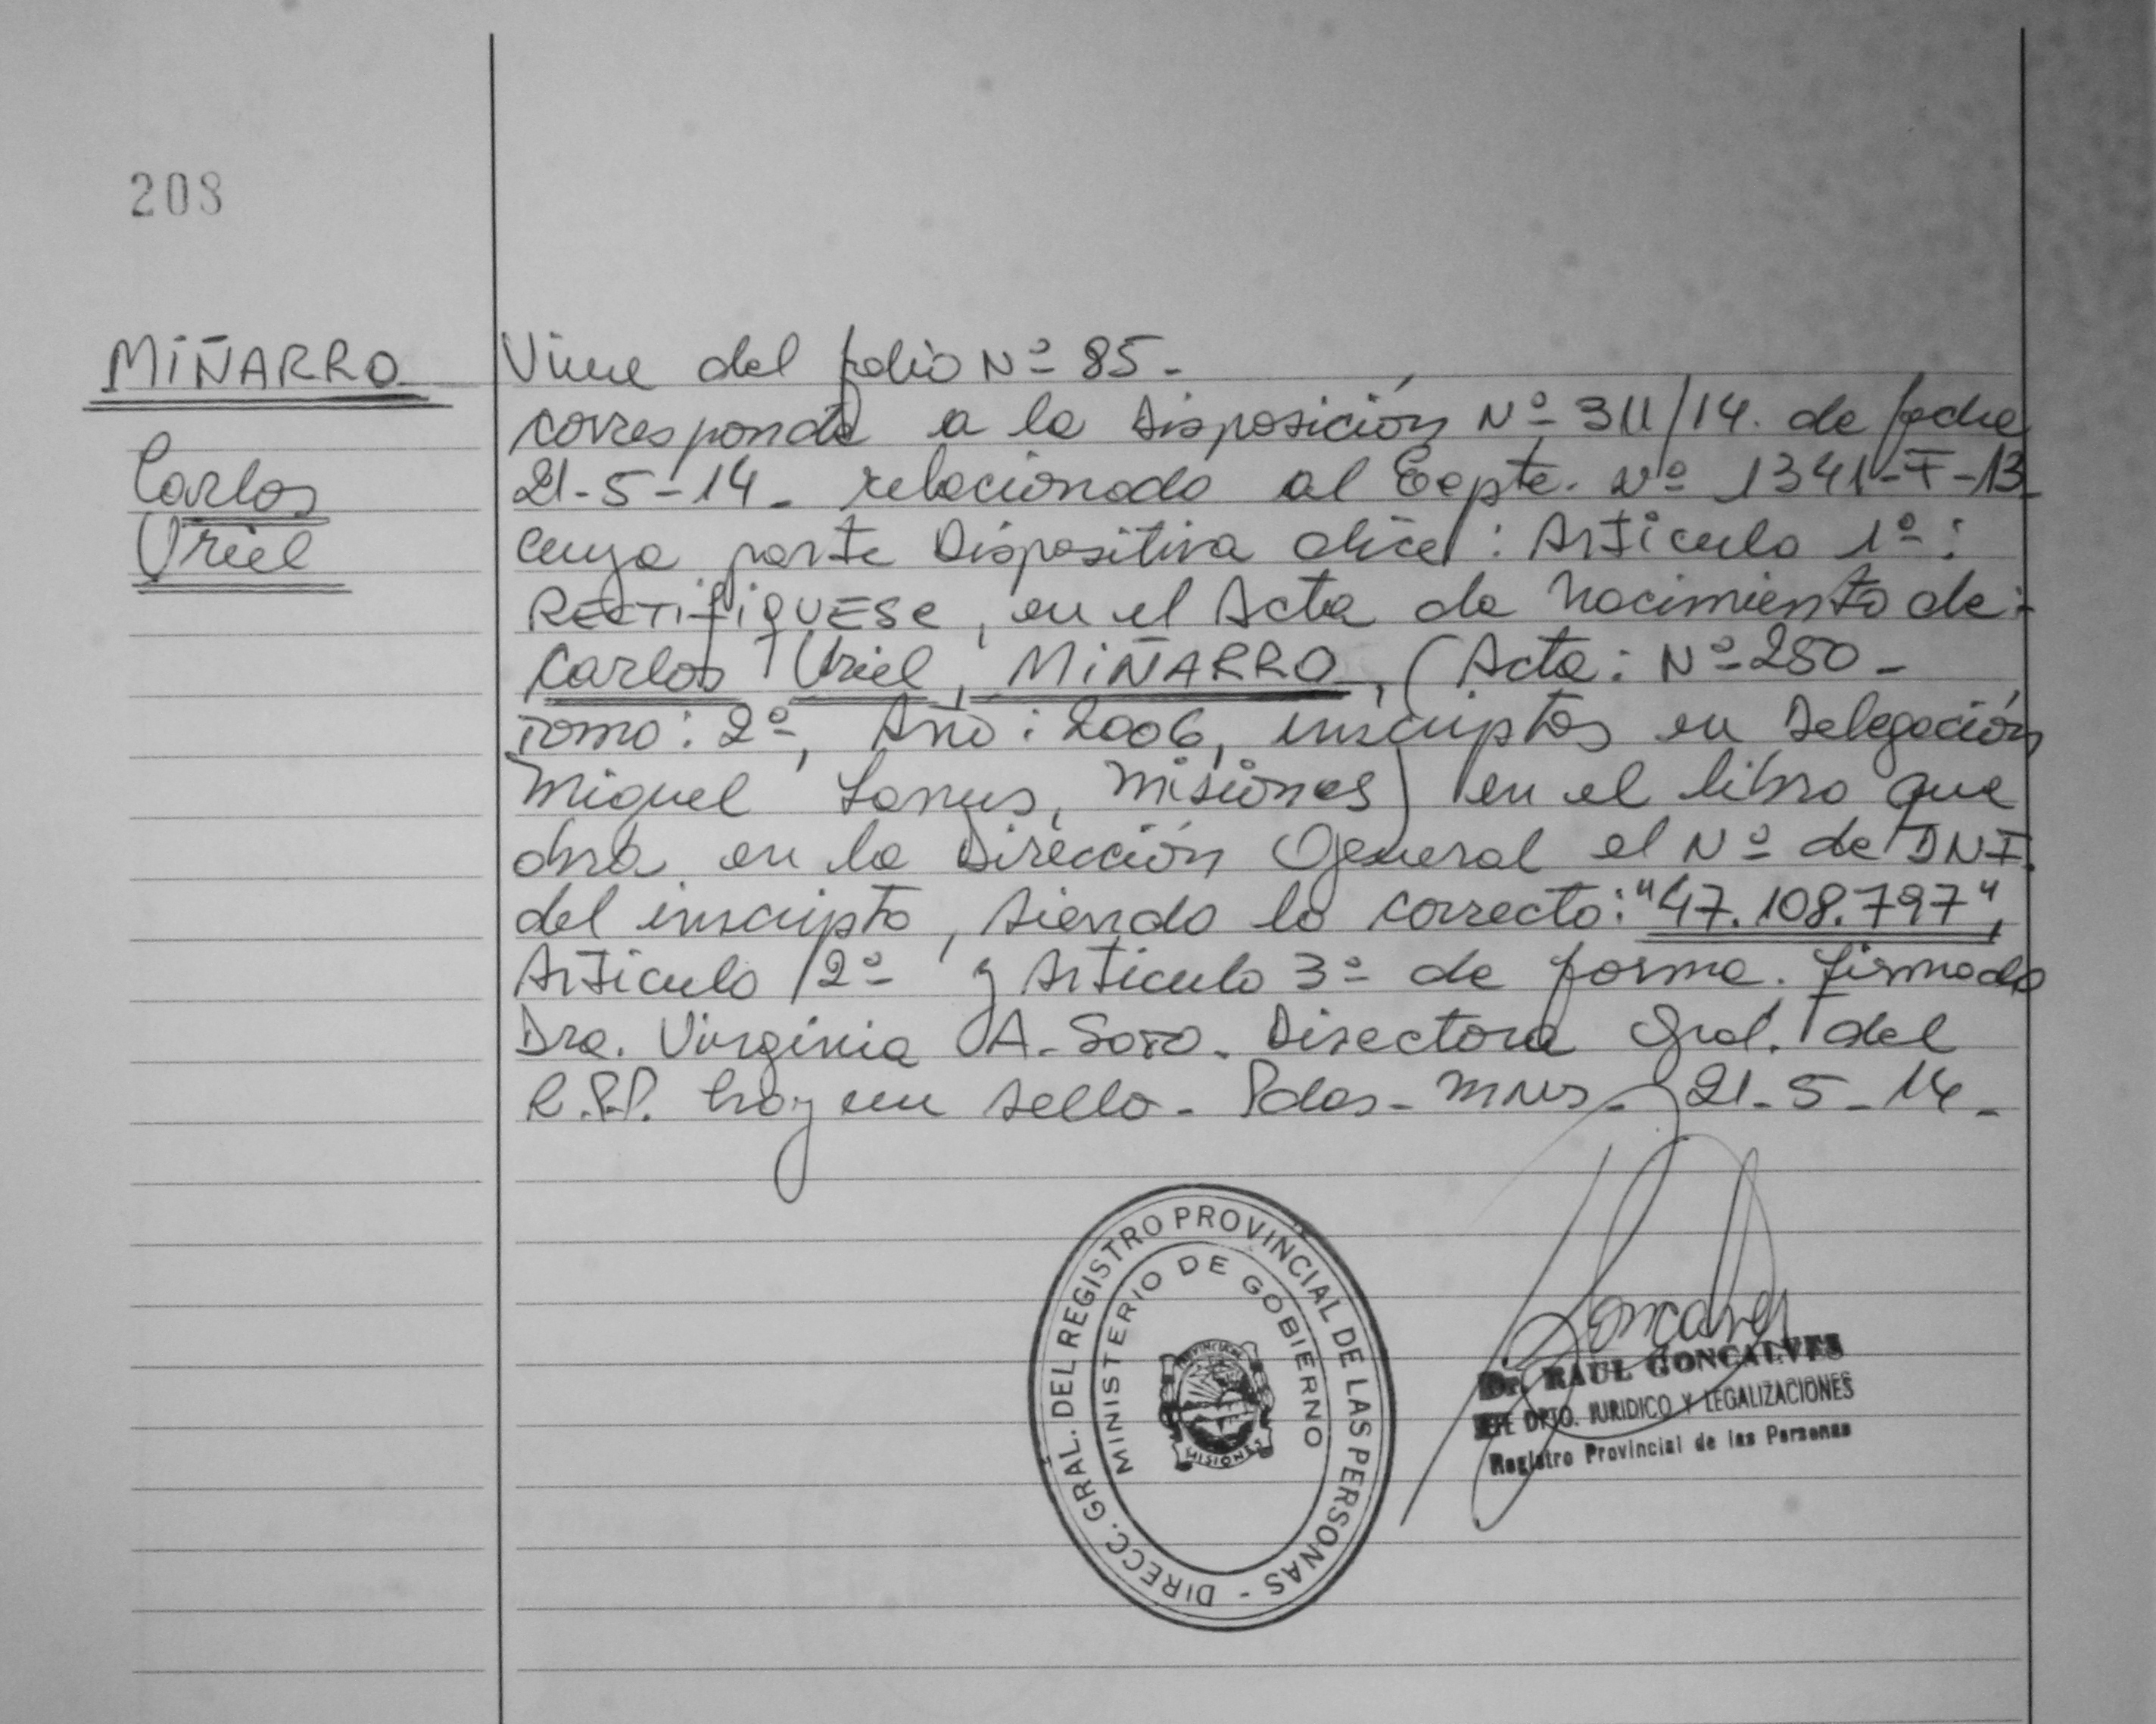 208
MIÑARRO
Carlos
Uriel
Viene del folio Nº 85.-
corresponde a la Disposición Nº 311/14. de fecha
21-5-14. relacionado al Expte. Nº 1341-F-13
cuya parte Dispositiva dice: Artículo 1º:
RECTIFIQUESE, en el Acta de Nacimiento de:
Carlos Uriel, MIÑARRO, (Acta: Nº 250-
Tomo: 2º, Año: 2006, inscriptos en Delegación
Miguel Lanus, Misiones) en el libro que
obra en la Dirección General el Nº de DNI.
del inscripto, siendo lo correcto: "47.108.797",
Artículo 2º y Artículo 3º de forma. Firmado
Dra. Virginia A. Soto. Directora Gral. del
R.P.P. hay un sello. Pdas. Mnes. 21-5-14-
DIRECC. GRAL. DEL REGISTRO PROVINCIAL DE LAS PERSONAS -
MINISTERIO DE GOBIERNO
MISIONES
Goncalves
Dr. RAUL GONCALVES
JEFE DPTO. JURIDICO Y LEGALIZACIONES
Registro Provincial de las Personas